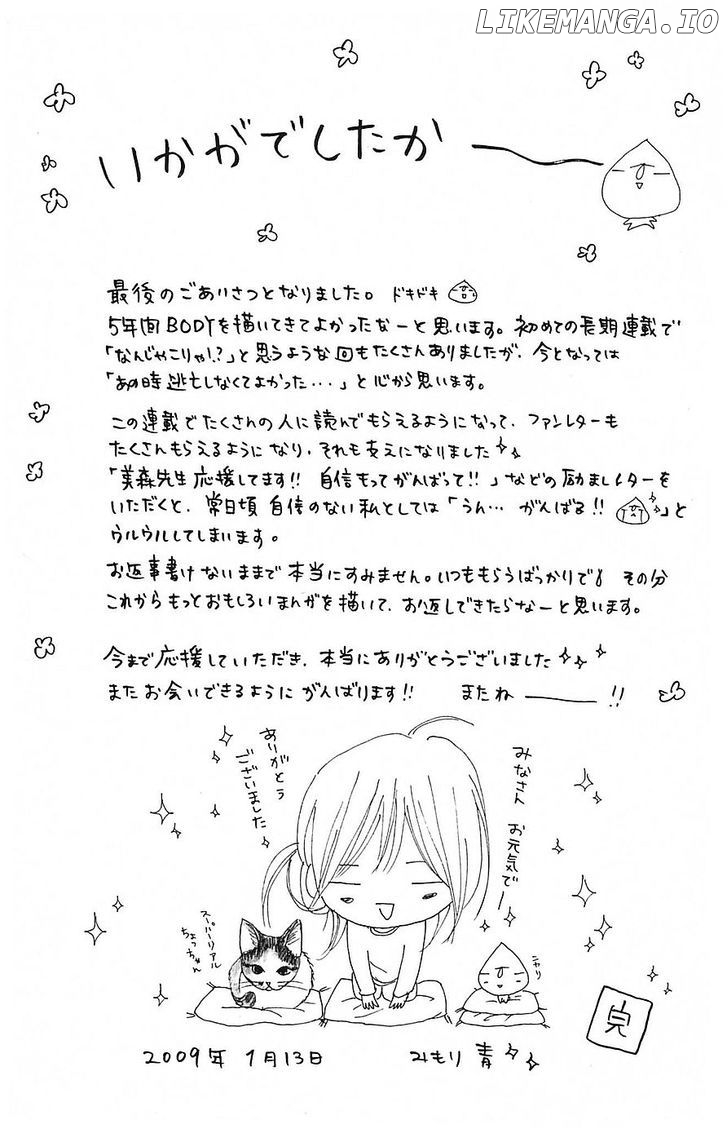 LIKEMANGA.IO
いかがでしたかー
最後のごあいさつとなりました。 ドキドキ
5年間BODYを描いてきてよかったなーと思います。初めての長期連載で
「なんじゃこりゃ!?」と思うような回もたくさんありましたが、今となっては
「あの時逃亡しなくてよかった・・・」と心から思います。
この連載でたくさんの人に読んでもらえるようになって、ファンレターも
たくさんもらえるようになり、それも支えになりました
「美森先生応援してます!! 自信もってがんばって!!」などの励ましレターを
いただくと、常日頃自信のない私としては「うん… がんばる!! 」と
ウルウルしてしまいます。
お返事書けないままで本当にすみません。いつももらうばっかりで その分
これからもっとおもしろいまんがを描いて、お返しできたらなーと思います。
今まで応援していただき、本当にありがとうございました
またお会いできるようにがんばります!! またねー!!
みなさん お元気でー
ありがとう
ございました
スーパーリアル
ちょっちゃん
ニヤリ
完
2009年 1月13日 みもり 青